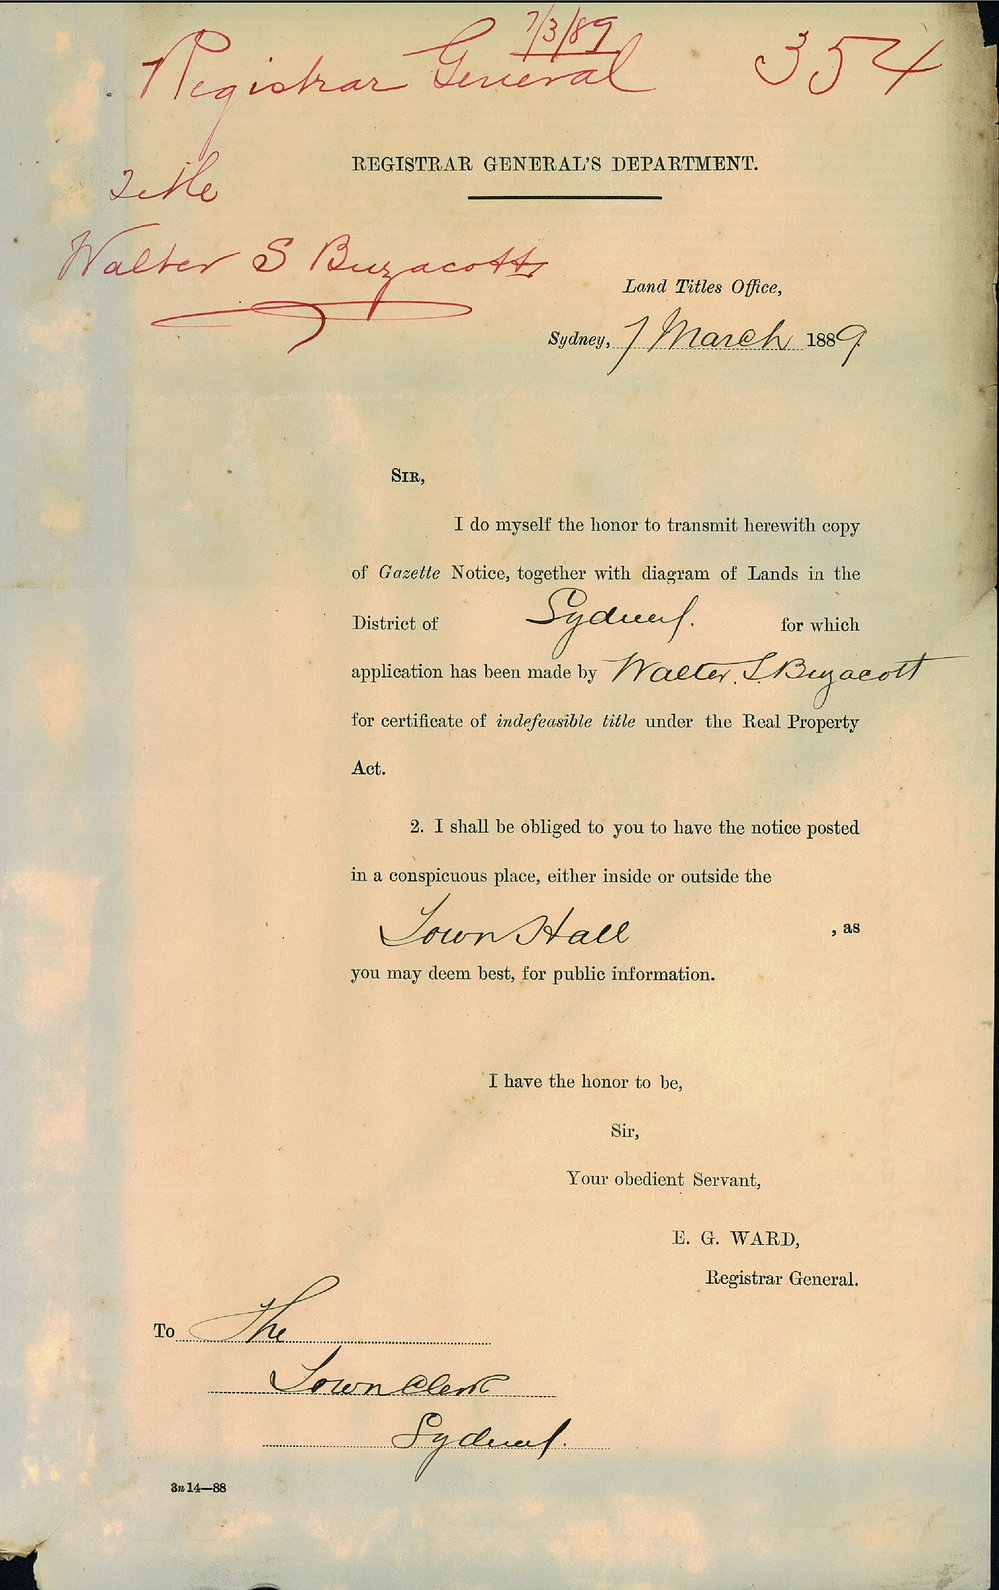 7/3/89
Registrar General 354
REGISTRAR GENERAL'S DEPARTMENT.
Title
Walter S Buzacott
Land Titles Office,
Sydney, 7 March 1889.
SIR,
I do myself the honor to transmit herewith copy
of Gazette Notice, together with diagram of Lands in the
District of Sydney. for which
application has been made by Walter. S. Buzacott
for certificate of indefeasible title under the Real Property
Act.
2. I shall be obliged to you to have the notice posted
in a conspicuous place, either inside or outside the
Town Hall , as
you may deem best, for public information.
I have the honor to be,
Sir,
Your obedient Servant,
E. G. WARD,
Registrar General.
To The
Town Clerk
Sydney.
3n 14—88